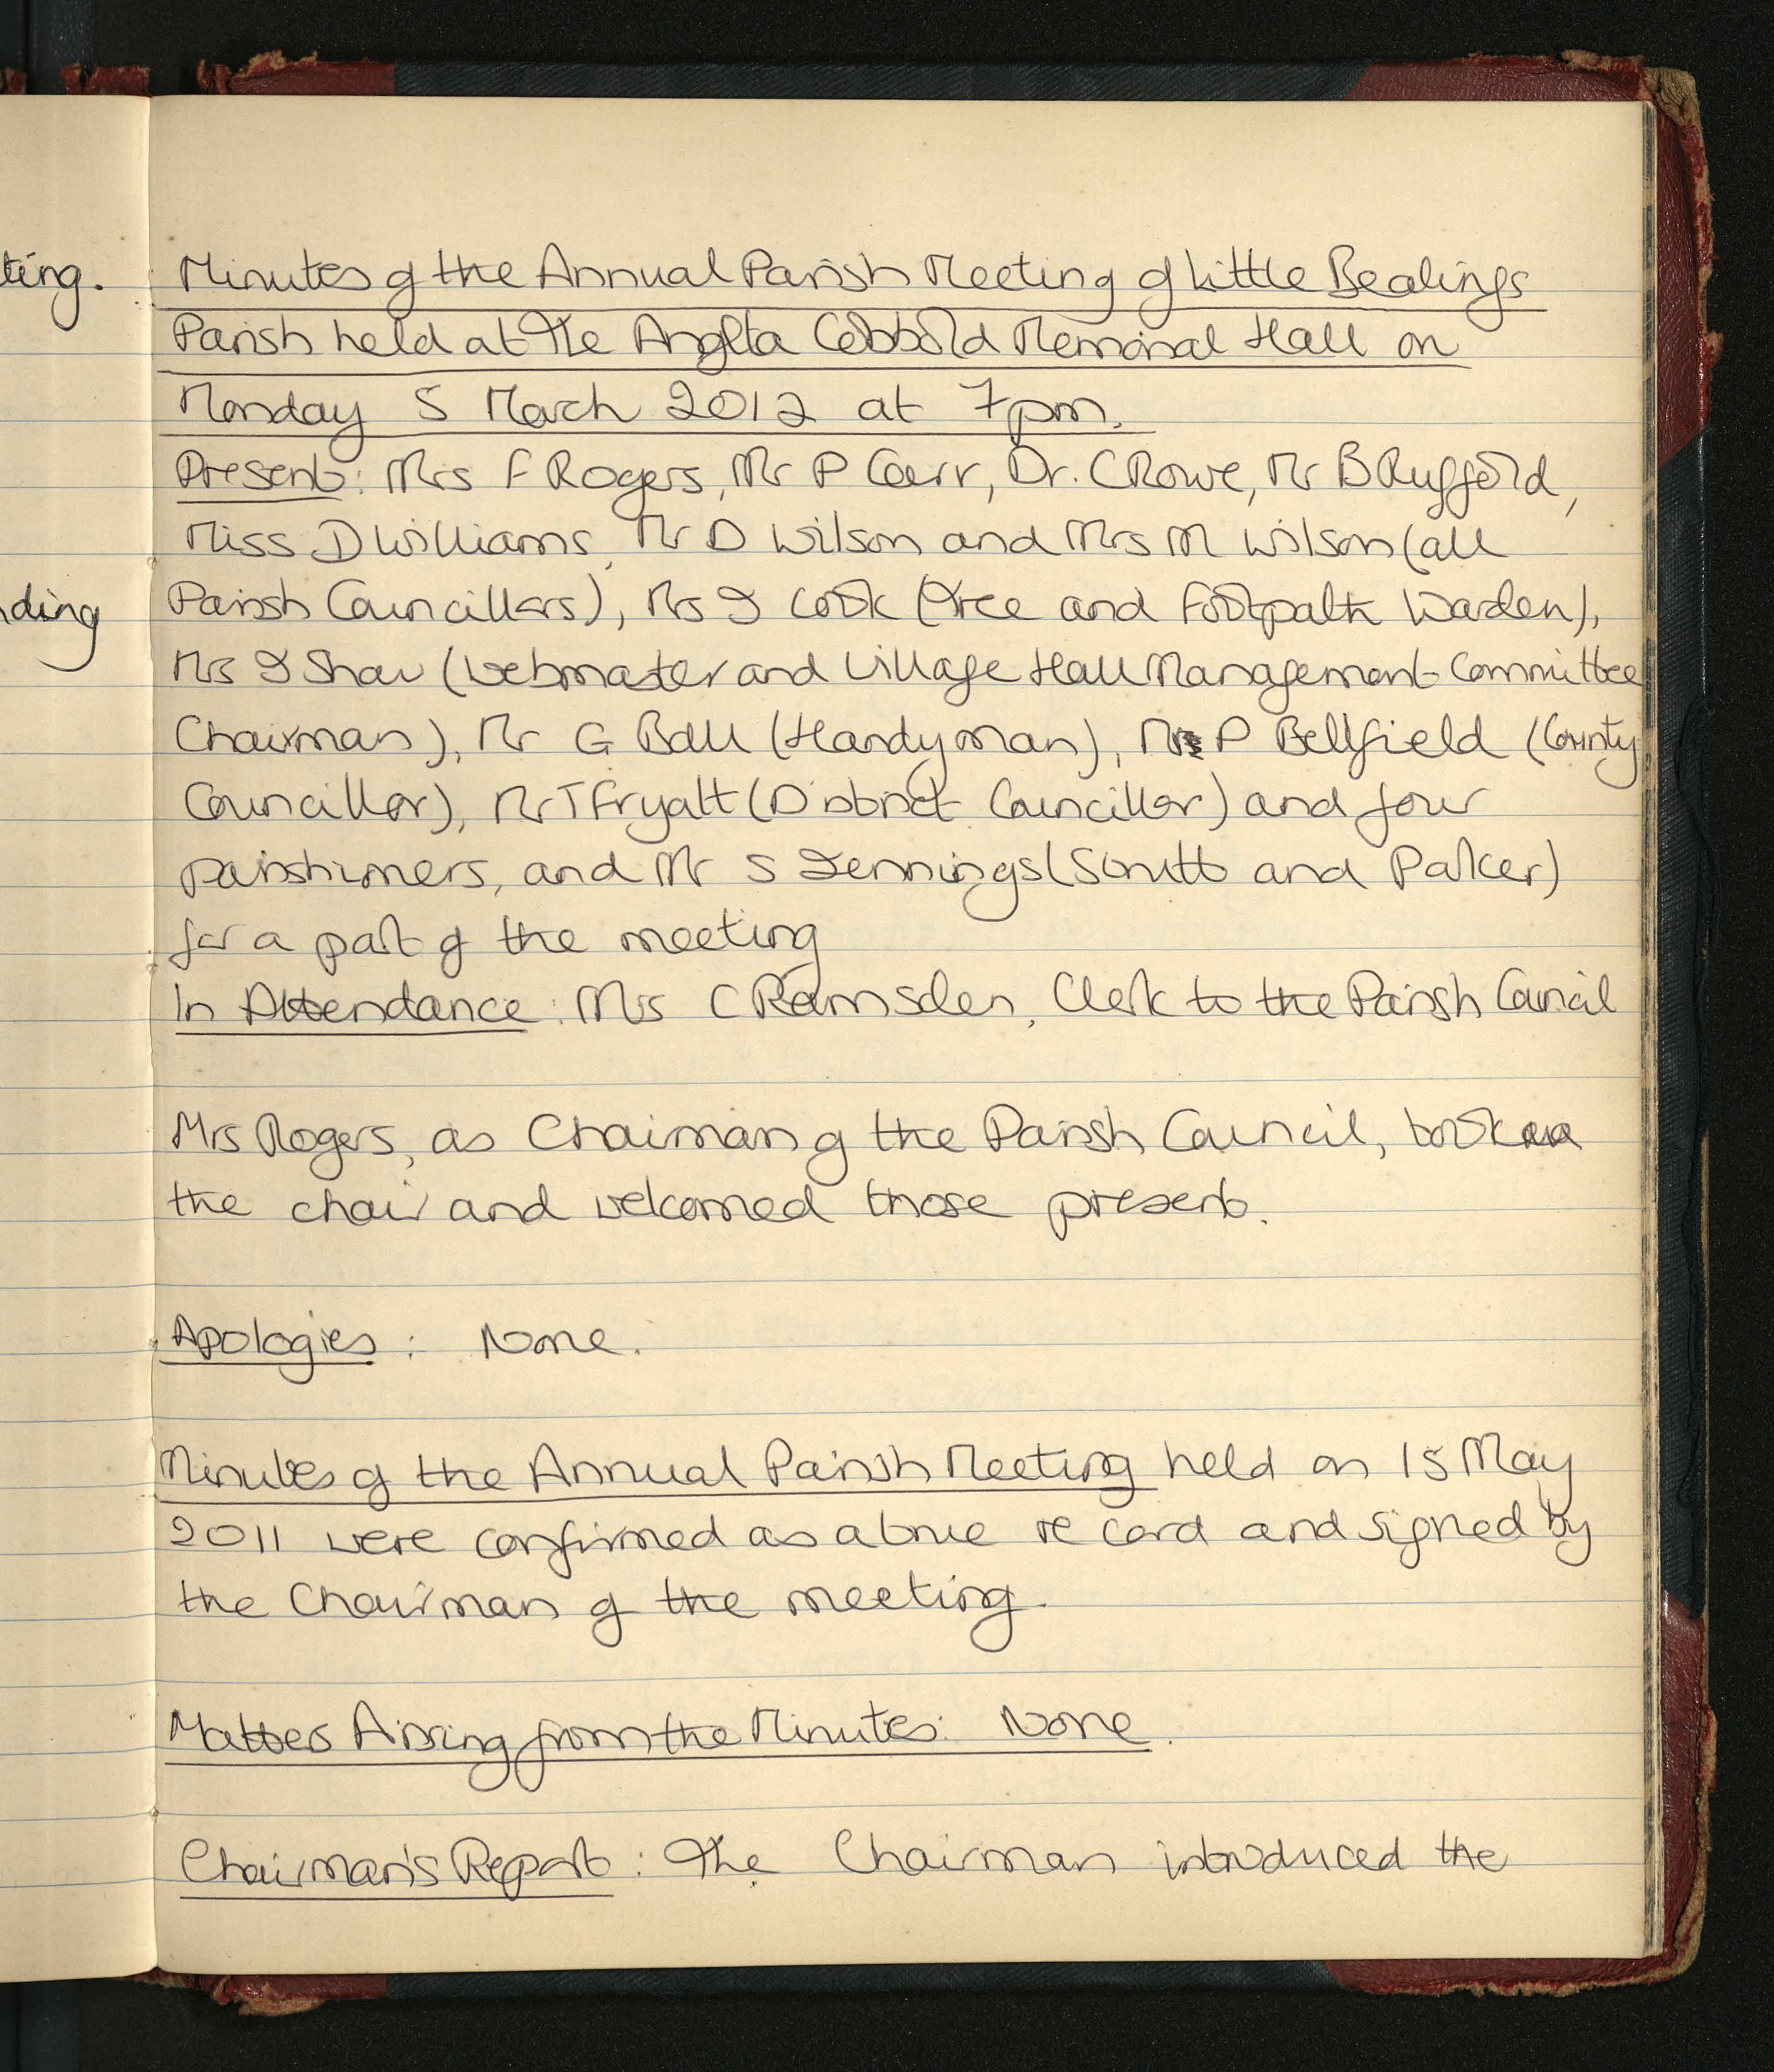 ting.
nding
Minutes of the Annual Parish Meeting of Little Bealings
Parish held at The Angela Cobbold Memorial Hall on
Monday 5 March 2012 at 7pm.
Present: Mrs F Rogers, Mr P Carr, Dr. C Rowe, Mr B Rufford,
Miss D Williams, Mr D Wilson and Mrs M Wilson (all
Parish Councillors), Mrs J Cook (Tree and Footpath Warden),
Mrs J Shaw (Webmaster and Village Hall Management Committee
Chairman), Mr G Ball (Handyman), Mr P Bellfield (County
Councillor), Mr T Fryatt (District Councillor) and four
parishioners, and Mr S Jennings (Scrutton and Parker)
for a part of the meeting
In Attendance: Mrs C Ramsden, Clerk to the Parish Council
Mrs Rogers, as Chairman of the Parish Council, took
the chair and welcomed those present.
Apologies: None.
Minutes of the Annual Parish Meeting held on 15 May
2011 were confirmed as a true record and signed by
the Chairman of the meeting.
Matters Arising from the Minutes: None.
Chairman's Report: The Chairman introduced the